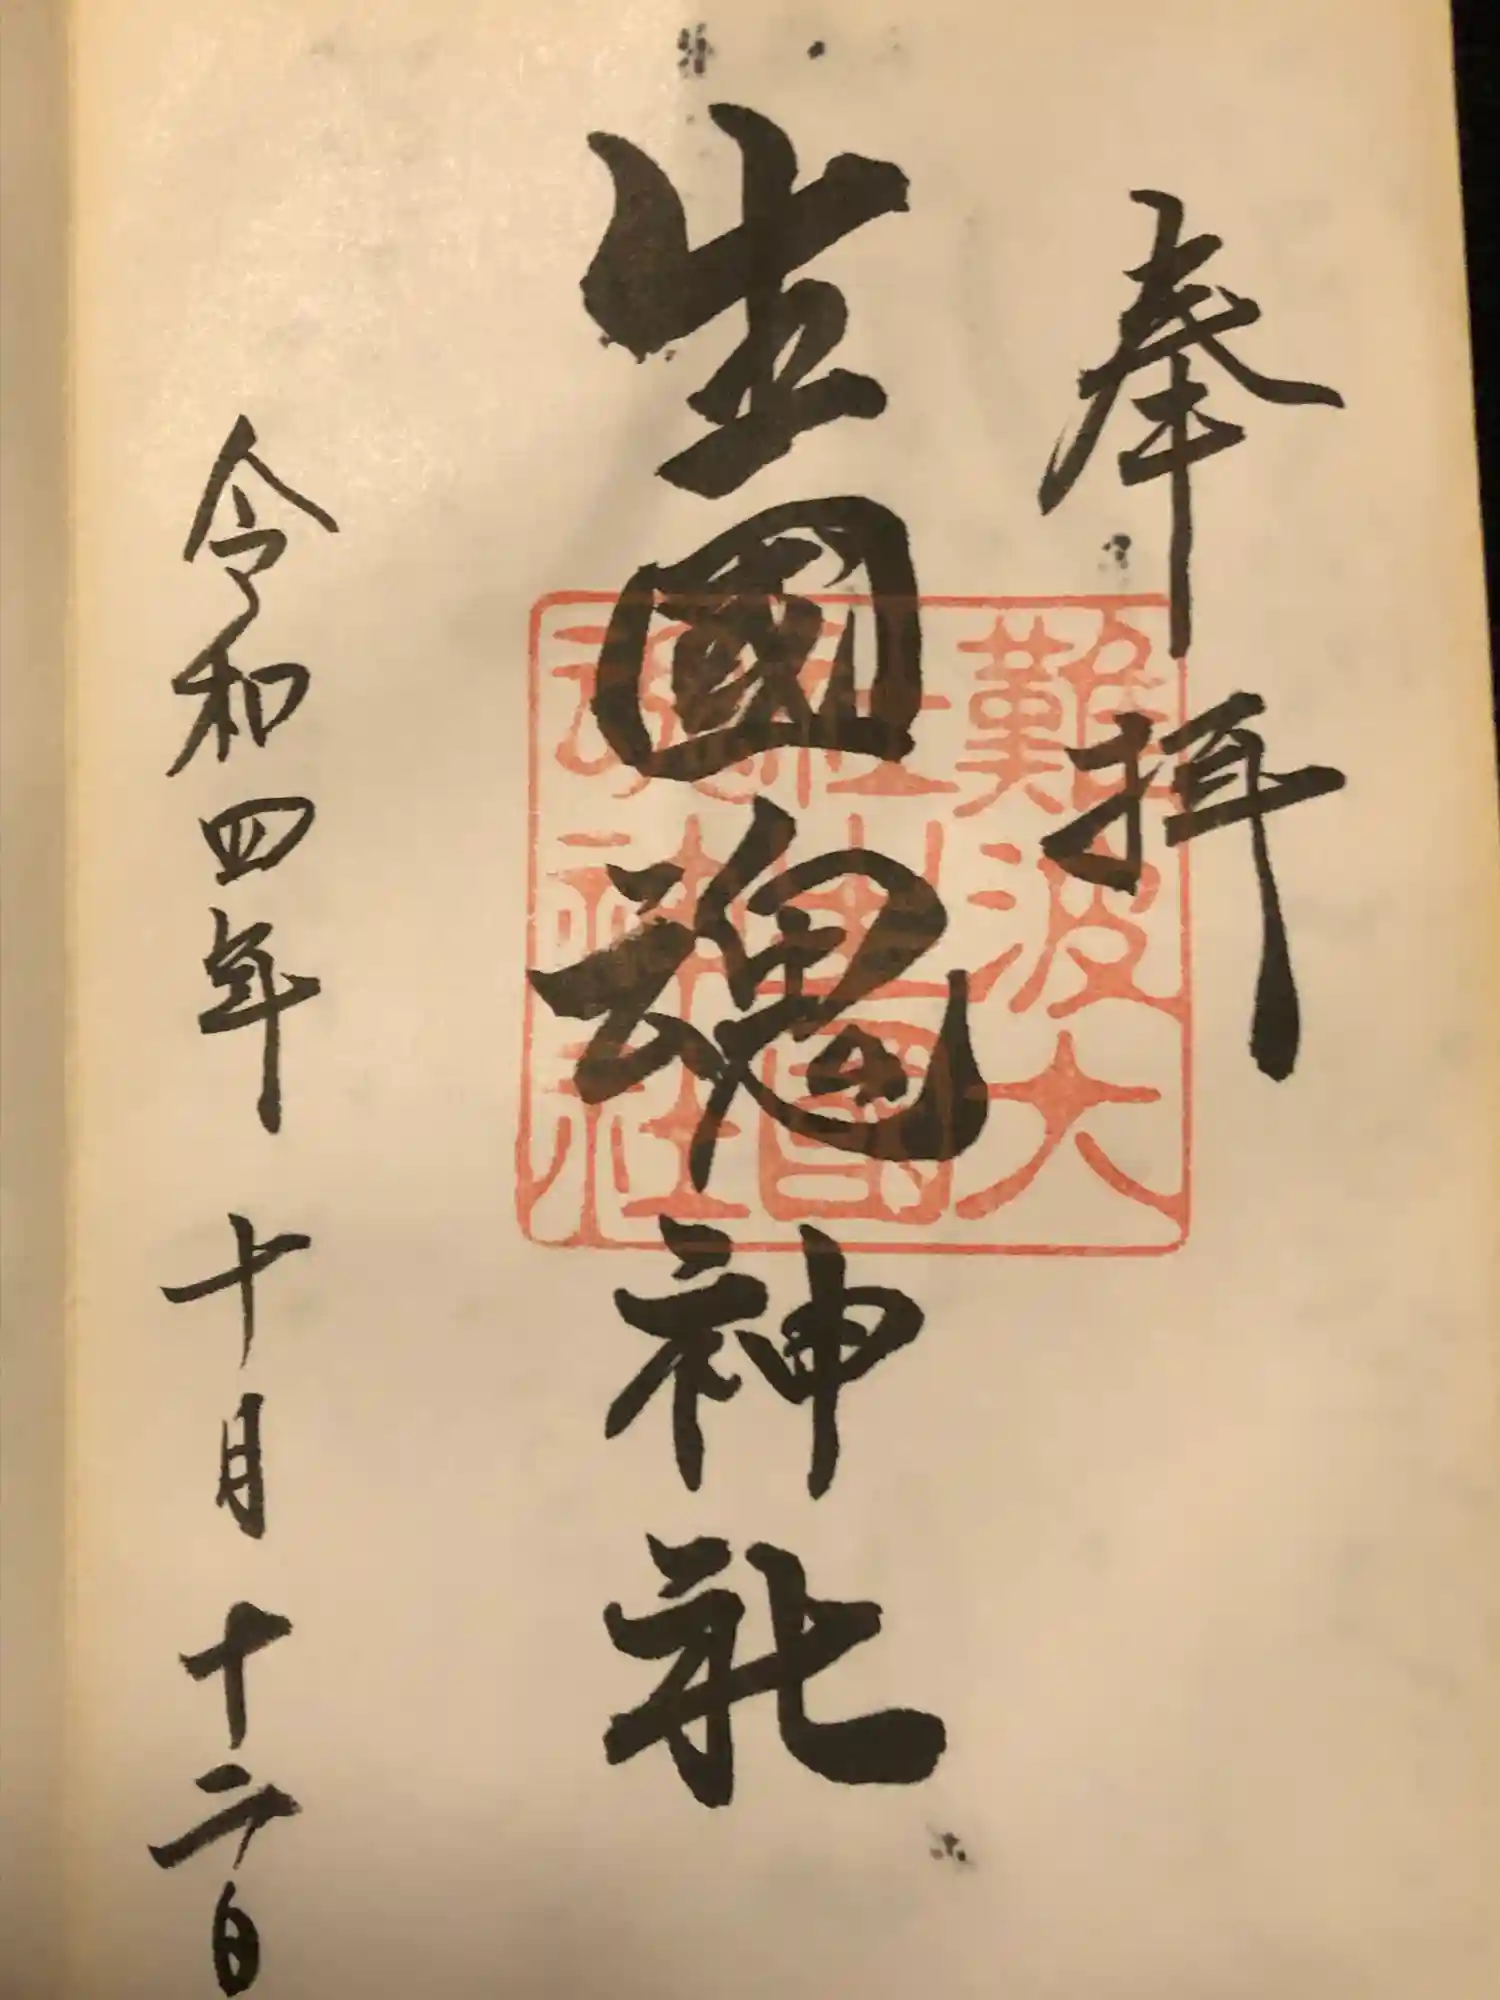 奉拝
生國魂神社
難波大
社生國
魂神社
令和四年十月十二日